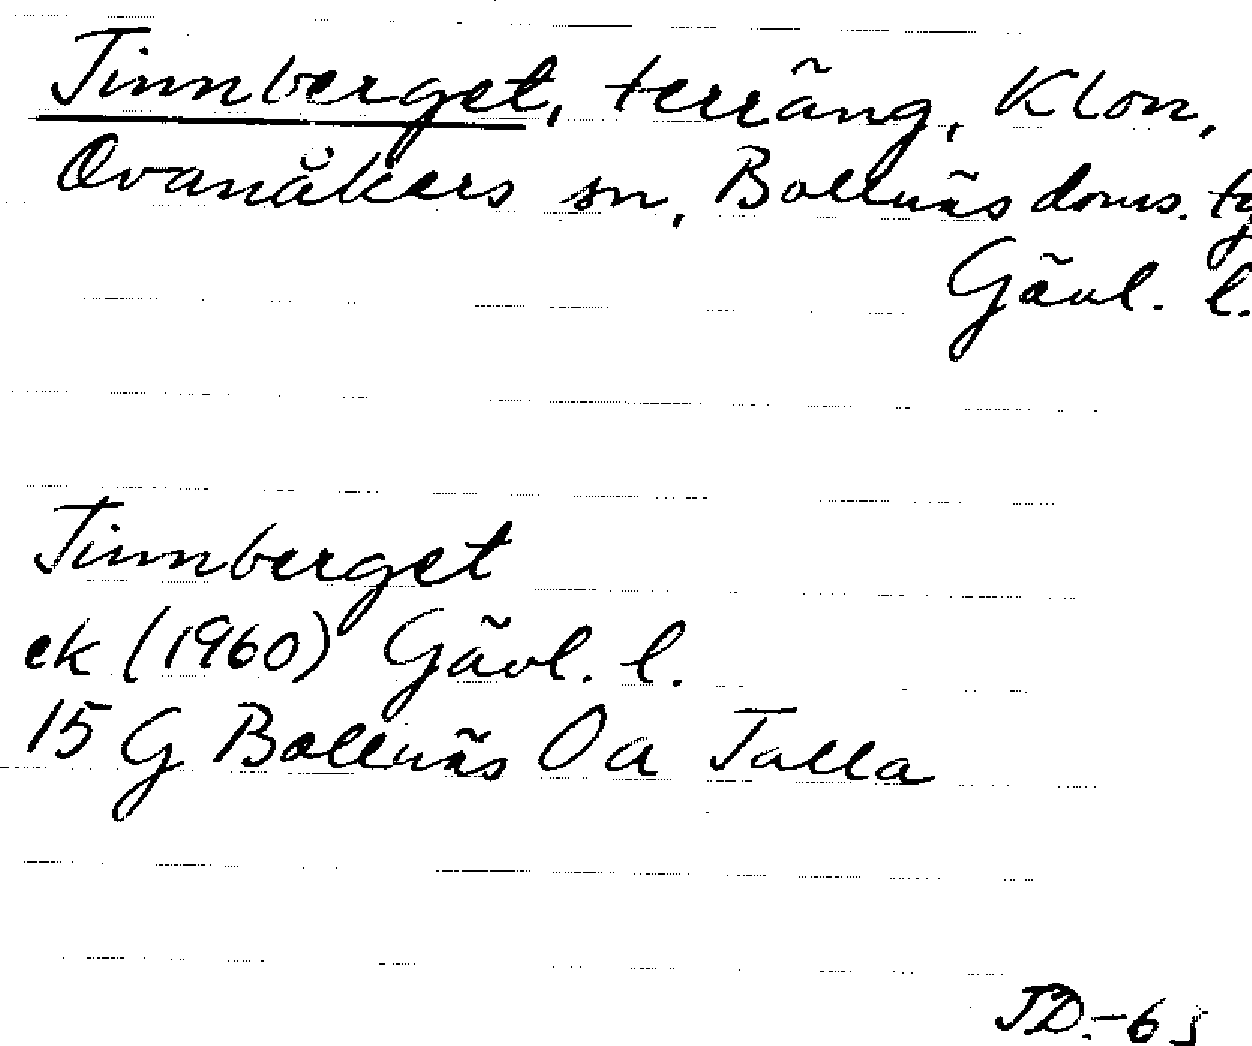 Tinnberget, terräng, Klon,
Ovanåkers sn, Bollnäs doms. tg
Gävl. l.
Tinnberget
ek (1960) Gävl. l.
15 G Bollnäs Oa Talla
JD.-65